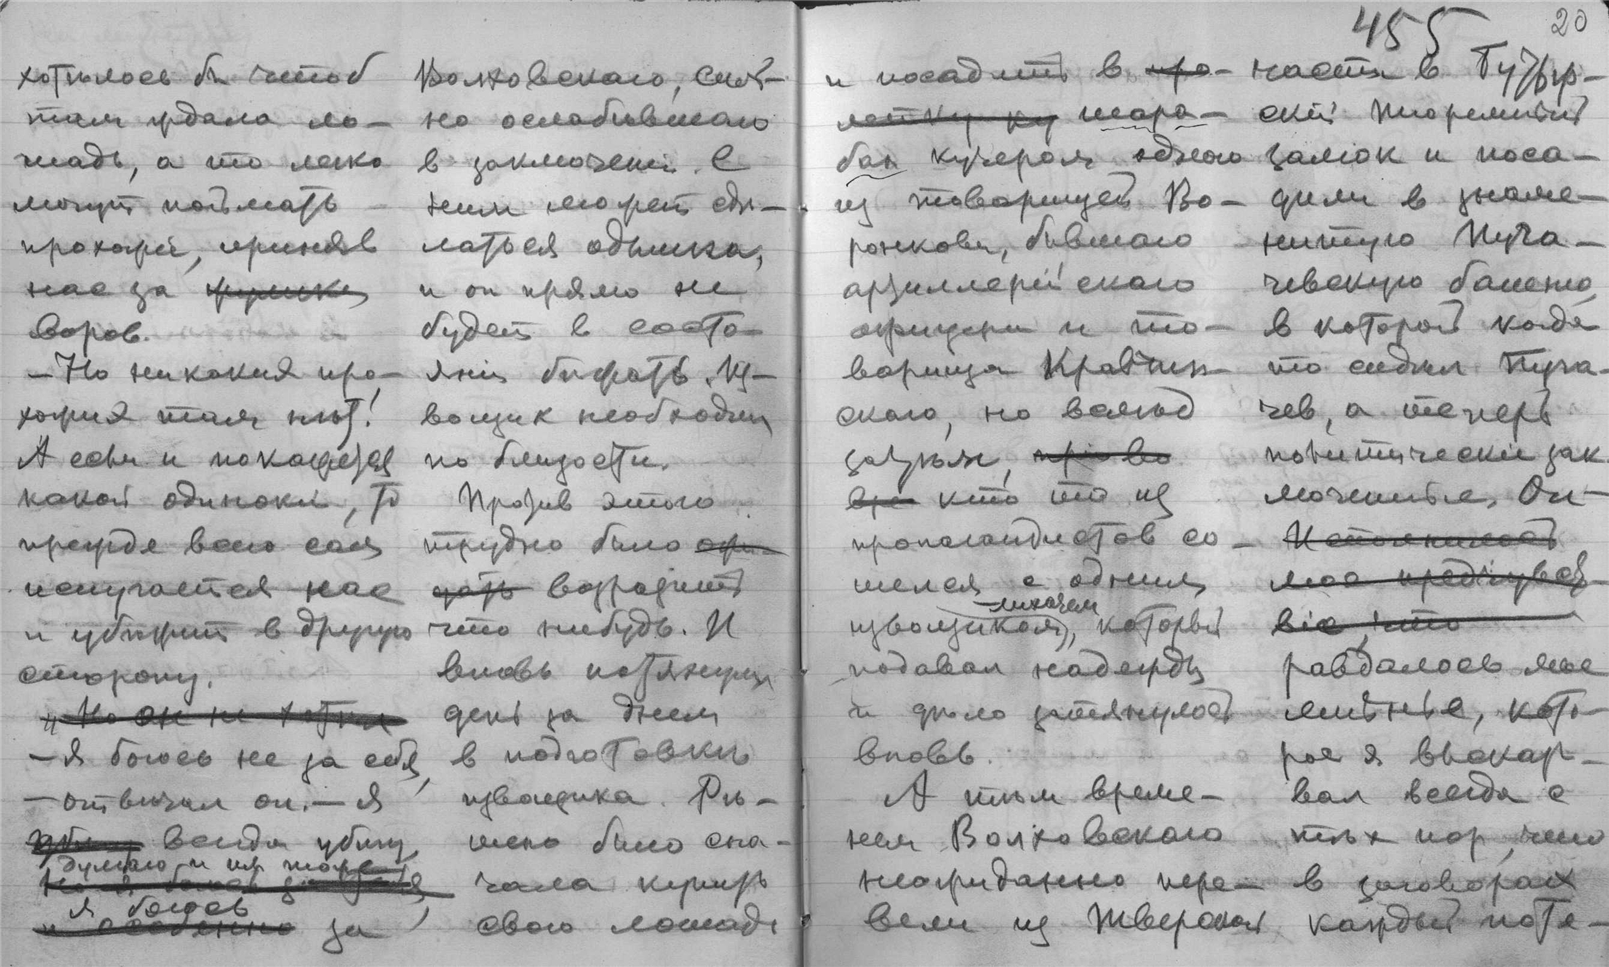 455
20
хотѣлось бы чтоб
там ждала ло-
шадь, а то легко
могут поймать
прохожіе, приняв
нас за жулико
воров.
— Но никаких про-
хожих там нѣт!
А если и покажется
какой одинокій, то
прежде всего сам
испугается нас
и убѣжит в другую
сторону.
„ Но он не хотѣл
— Я боюсь не за себя,
— отвѣчал он. — Я
всегда убѣгу,
думаю и вы тоже
я боюсь
и особенно за
Волховскаго, силь-
но ослабѣвшаго
в заключеніи. С
ним может сдѣ-
латься одышка,
и он прямо не
будет в состо-
яніи бѣжать. Из-
вощик необходим
по близости.
Против этого
трудно было
возразить
что нибудь. И
вновь потянулись
день за днем
в подготовкѣ
извощика. Рѣ-
шено было сна-
чала купить
свою лошадь
и посадить в про-
летку ку шара-
бан кучером одного
из товарищей Во-
ронкова, бывшаго
артиллерійскаго
офицера и то-
варища Кравчин-
скаго, но вслѣд
затѣм,
кто то из
пропагандистов со-
шелся с одним
извощиком, -лихачем
который
подавал надежды
и дѣло затянулось
вновь.
А тѣм време-
нем Волховскаго
неожиданно пере-
вели из Тверской
части в Бутыр-
скій тюремный
замок и поса-
дили в знаме-
нитую Пуга-
чевскую башню,
в которой когда
то сидѣл Пуга-
чев, а теперь
политическіе зак-
люченные. Оп-
Исполнилось
мое предчувст-
віе, что
равдалось мое
мнѣніе, кото-
рое я выскаг-
вал всегда с
тѣх пор, что
в заговорах
каждый потѣ-